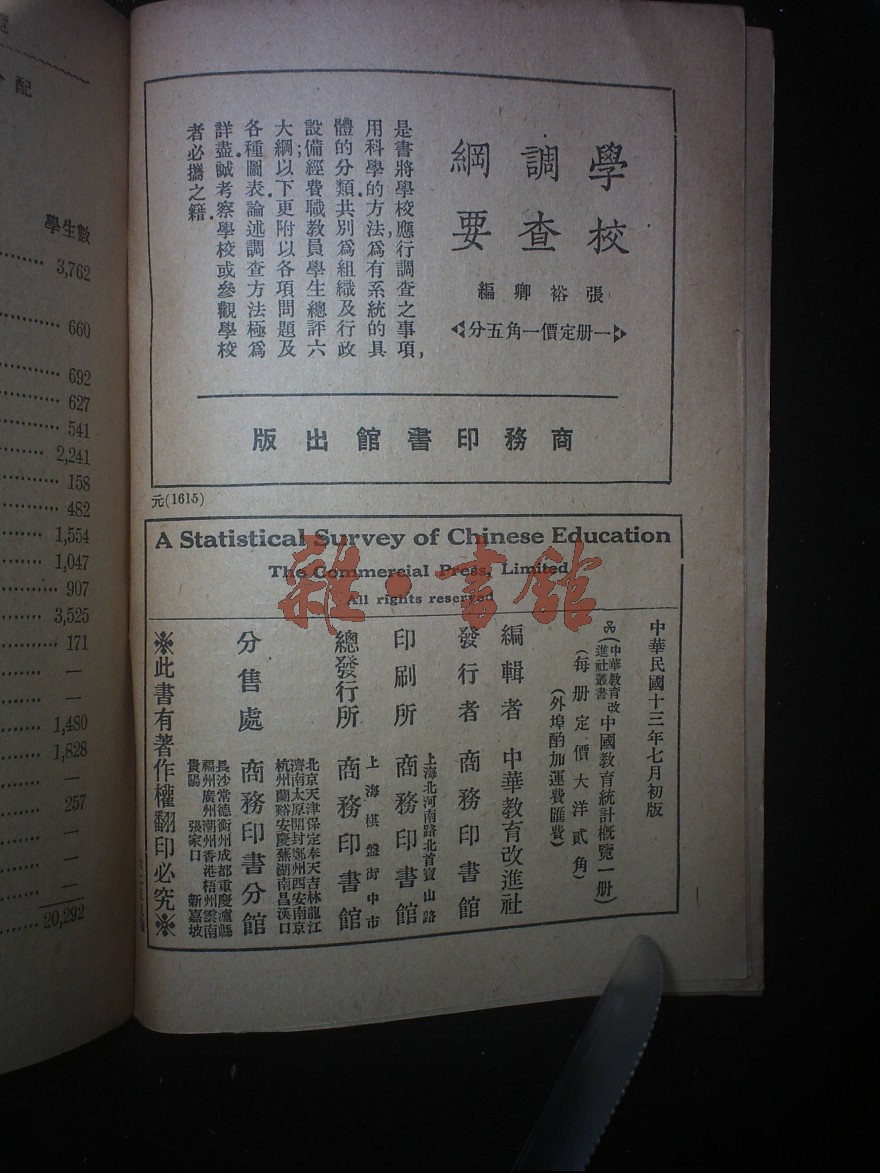 配
學生數
3,762
660
692
627
541
2,241
158
482
1,554
1,047
907
3,525
171
—
—
1,480
1,828
—
257
—
—
—
20,292
學校
調查
綱要
張裕卿編
一册定價一角五分
是書將學校應行調查之事項,
用科學的方法,爲有系統的具
體的分類.共別爲組織及行政
設備經費職教員學生總評六
大綱;以下更附以各項問題及
各種圖表.論述調查方法極爲
詳盡.誠考察學校或參觀學校
者必攜之籍.
商務印書館出版
元(1615)
A Statistical Survey of Chinese Education
The Commercial Press, Limited
All rights reserved
雜·書館
中華民國十三年七月初版
(中華教育改進社叢書 中國教育統計概覽一册)
(每册定價大洋貳角)
(外埠酌加運費匯費)
編輯者 中華教育改進社
發行者 商務印書館
上海北河南路北首寶山路
印刷所 商務印書館
上海棋盤街中市
總發行所 商務印書館
北京天津保定奉天吉林龍江
濟南太原開封鄭州西安南京
杭州蘭谿安慶蕪湖南昌漢口
分售處 商務印書分館
長沙常德衡州成都重慶瀘縣
福州廣州潮州香港梧州雲南
貴陽 張家口 新嘉坡
※此書有著作權翻印必究※